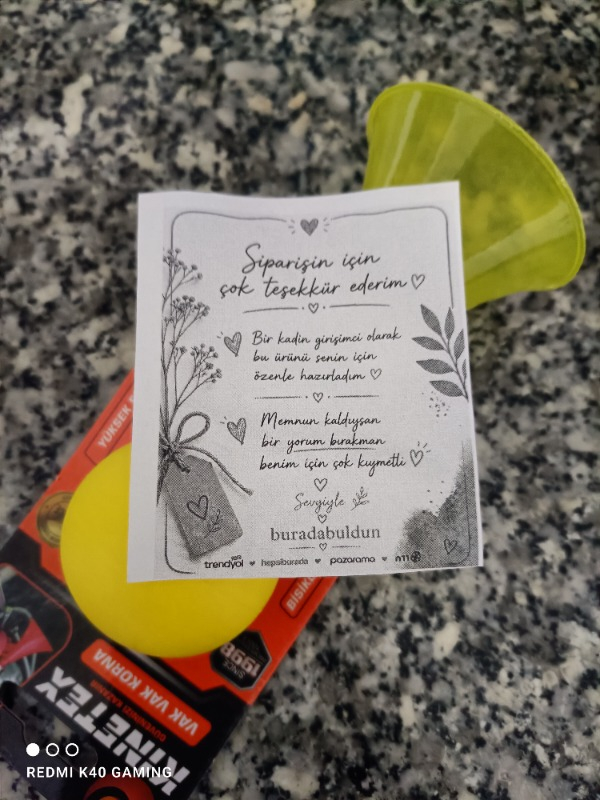 Siparişin için
çok teşekkür ederim
Bir kadın girişimci olarak
bu ürünü senin için
özenle hazırladım
Memnun kaldıysan
bir yorum bırakman
benim için çok kıymetli
Sevgiyle
buradabuldun
trendyol hepsiburada pazarama n11
YÜKSEK
BİSİK
SINCE
1998
VAK VAK KORNA
KINETEX
REDMI K40 GAMING